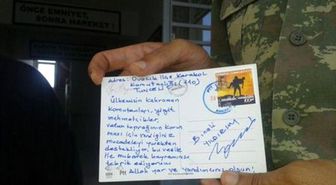 ÖNCE EMNİYET,
SONRA HAREKET!
Adres: Ovacık İlçe Karakol
Komutanlığı (310)
TUNCELİ
Ülkemizin kahraman
komutanları, yiğit
mehmetçikler,
vatan toprağının korun
ması için verdiğiniz
mücadeleyi yürekten
destekliyor, bu vesile
ile mübarek bayramınızı
tebrik ediyorum
Allah yar ve yardımcınız olsun!
Binali
YILDIRIM